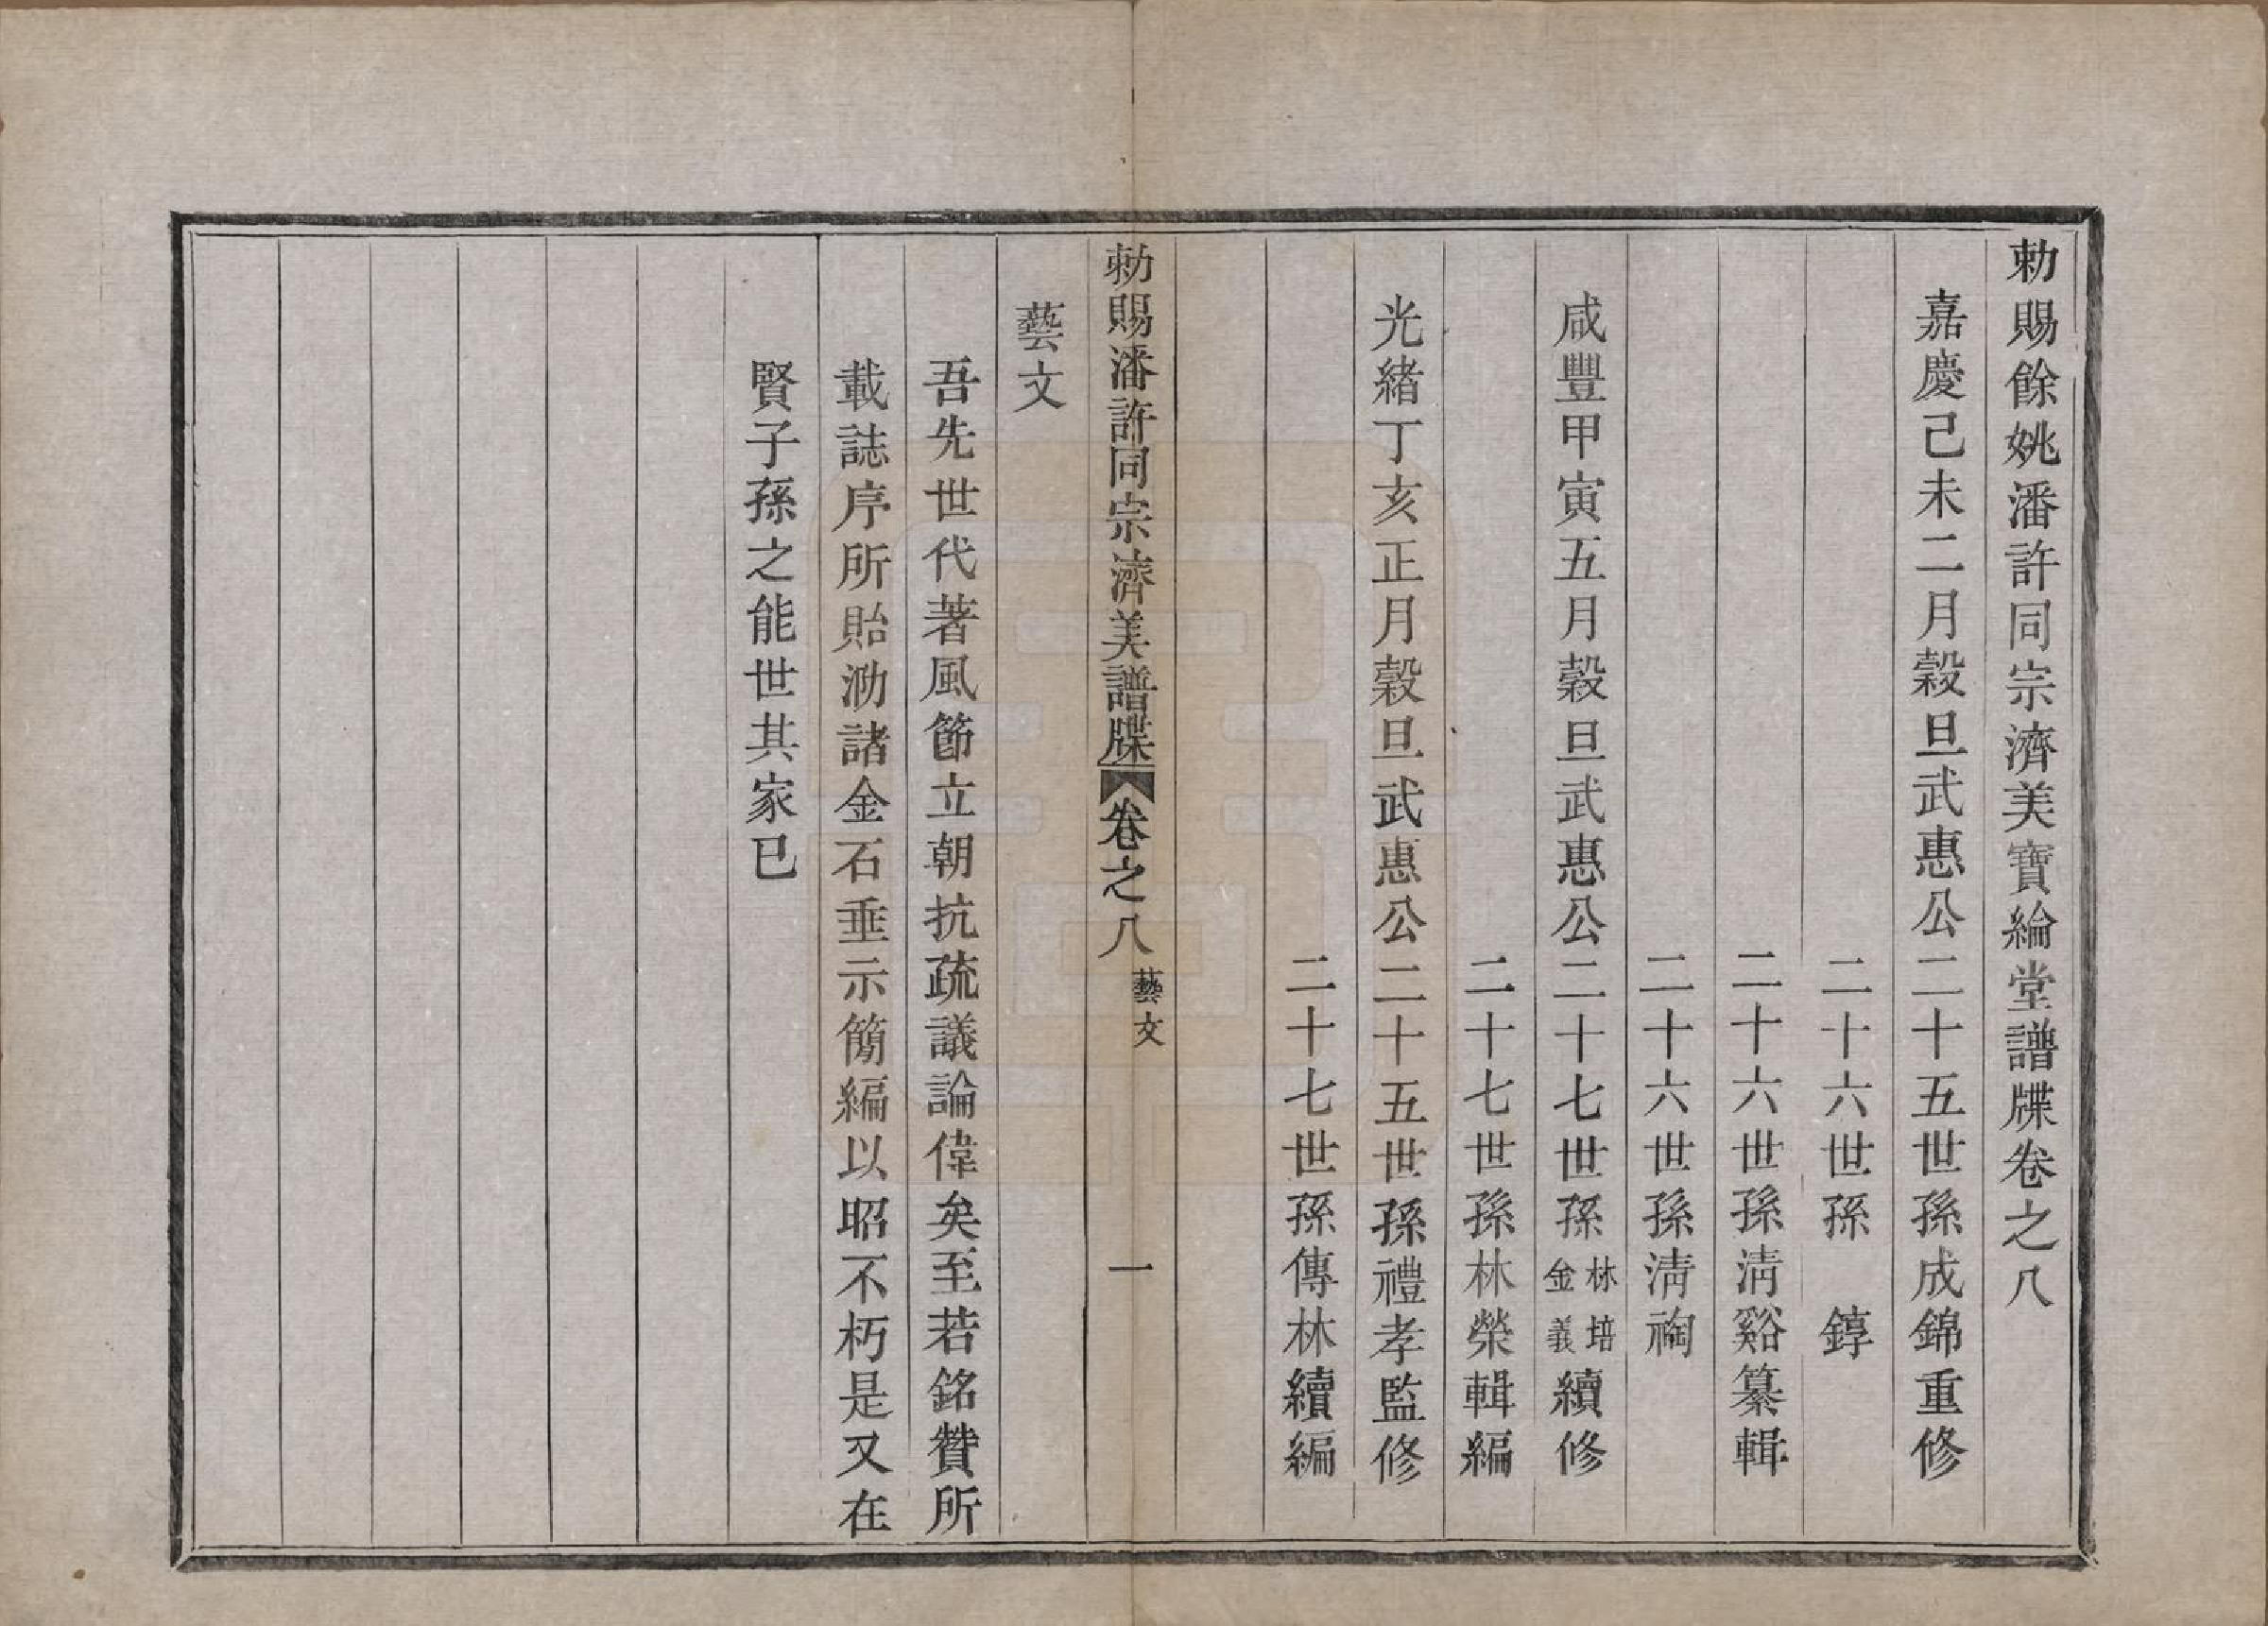 勅賜餘姚潘許同宗濟美寶綸堂譜牒卷之八
嘉慶己未二月穀旦武惠公二十五世孫成錦重修
二十六世孫　錞
二十六世孫淸谿纂輯
二十六世孫淸裪
咸豐甲寅五月穀旦武惠公二十七世孫林培金義續修
二十七世孫林榮輯編
光緖丁亥正月穀旦武惠公二十五世孫禮孝監修
二十七世孫傳林續編
勅賜潘許同宗濟美譜牒　卷之八　藝文　一
藝文
吾先世代著風節立朝抗疏議論偉矣至若銘贊所
載誌序所貽泐諸金石垂示簡編以昭不朽是又在
賢子孫之能世其家已